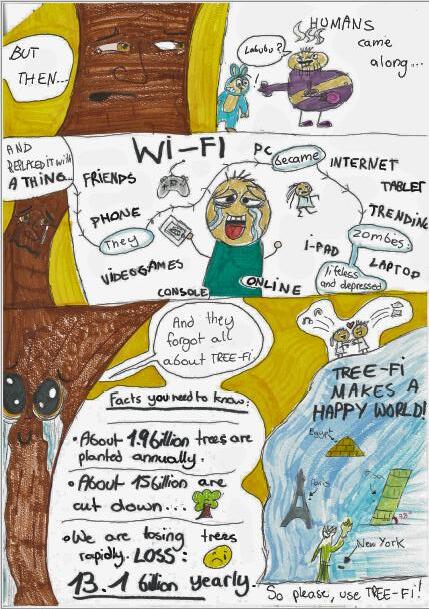 BUT
THEN...
Labubu?
!
HUMANS
came
along...
AND
REPLACED IT WITH
A THING...
WI-FI
FRIENDS
PHONE
They
VIDEOGAMES
CONSOLE
PC
became
INTERNET
TABLET
TRENDING
zombies:
I-PAD
LAPTOP
lifeless
and depressed
ONLINE
And they
forgot all
about TREE-Fi.
Facts you need to know:
• About 1.9 Billion trees are
planted annually.
• About 15 Billion are
cut down...
• We are losing trees
rapidly. LOSS:
13.1 billion yearly.
TREE-Fi
MAKES A
HAPPY WORLD!
Egypt
Paris
Pisa
New York
So please, use TREE-Fi!